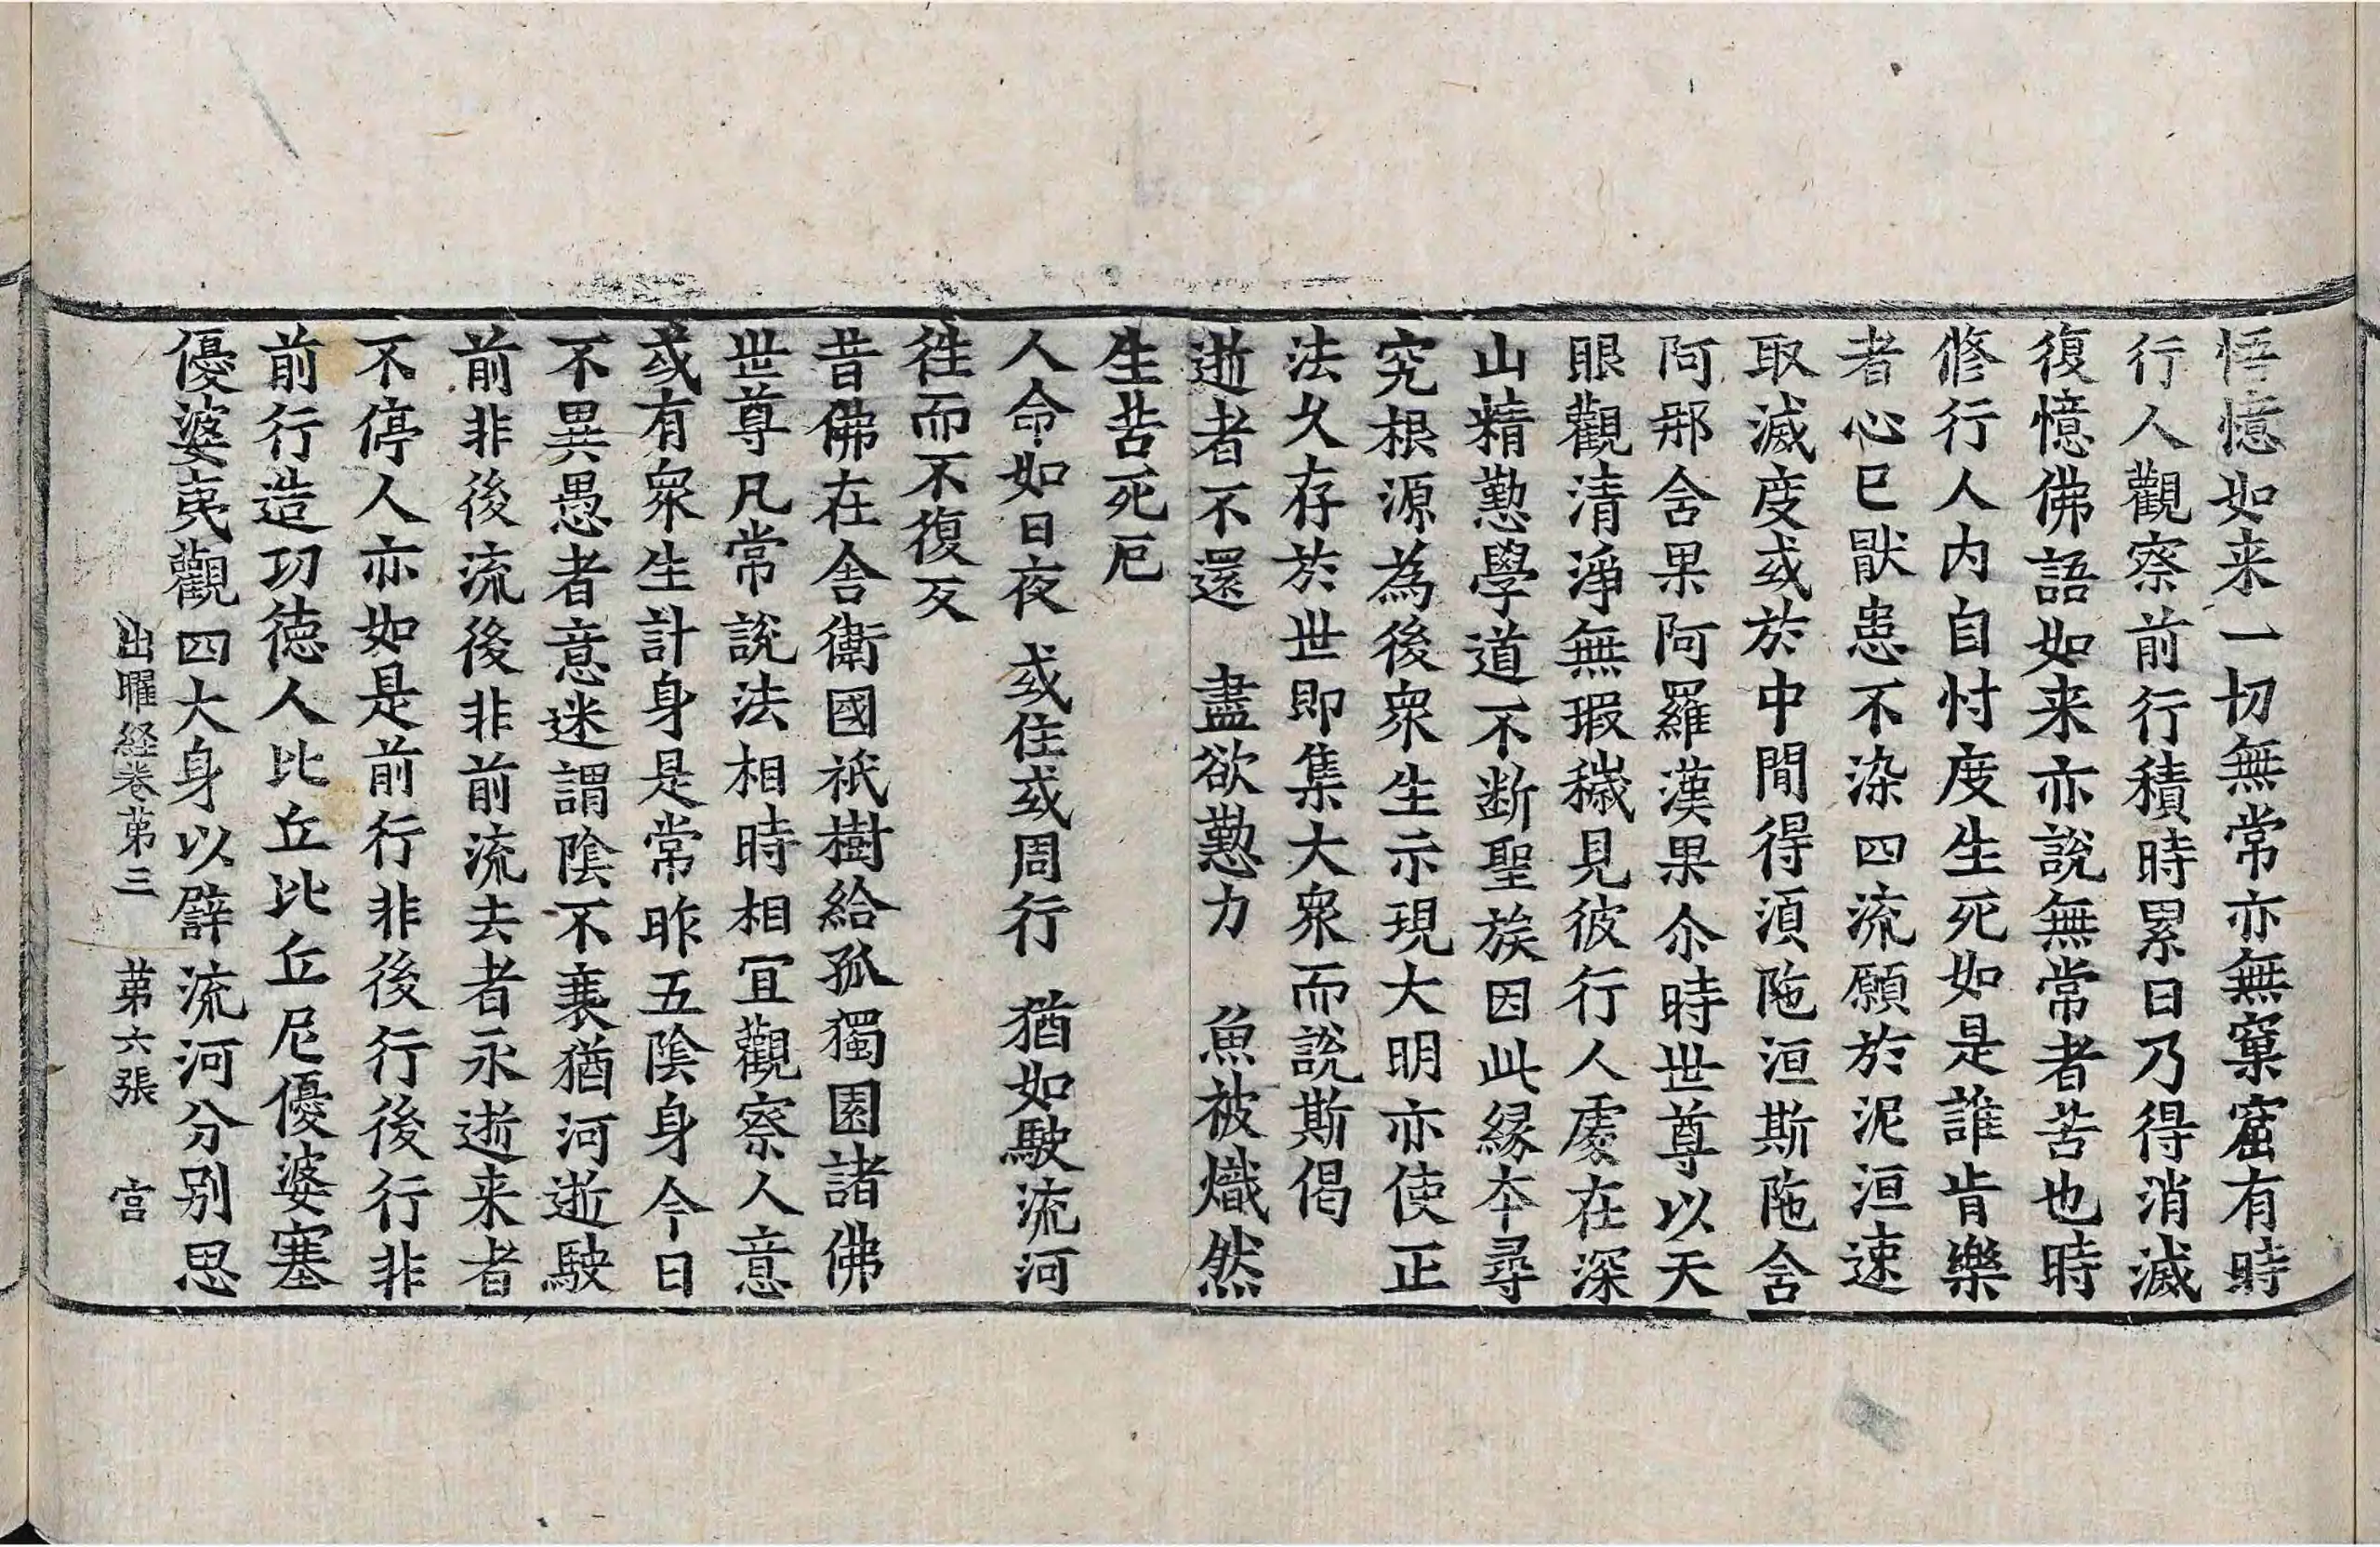 悟憶如来一切無常亦無窠窟有時
行人觀察前行積時累日乃得消滅
復憶佛語如来亦說無常者苦也時
修行人内自忖度生死如是誰肯樂
者心已猒患不染四流願於泥洹速
取滅度或於中間得湏陁洹斯陁含
阿那含果阿羅漢果尒時世尊以天
眼觀清淨無瑕穢見彼行人處在深
山精懃學道不断聖族因此縁本尋
究根源為後衆生示現大明亦使正
法久存於世即集大衆而說斯偈
逝者不還　盡欲懃力　魚被熾然
生苦死厄
人命如日夜　或住或周行　猶如駛流河
往而不復反
昔佛在舍衛國祇樹給孤獨園諸佛
世尊凡常說法相時相冝觀察人意
或有衆生計身是常昨五陰身今日
不異愚者意迷謂陰不衰猶河逝駛
前非後流後非前流去者永逝来者
不停人亦如是前行非後行後行非
前行造功徳人比丘比丘尼優婆塞
優婆夷觀四大身以譬流河分别思
出曜経卷第三　第六張　宫